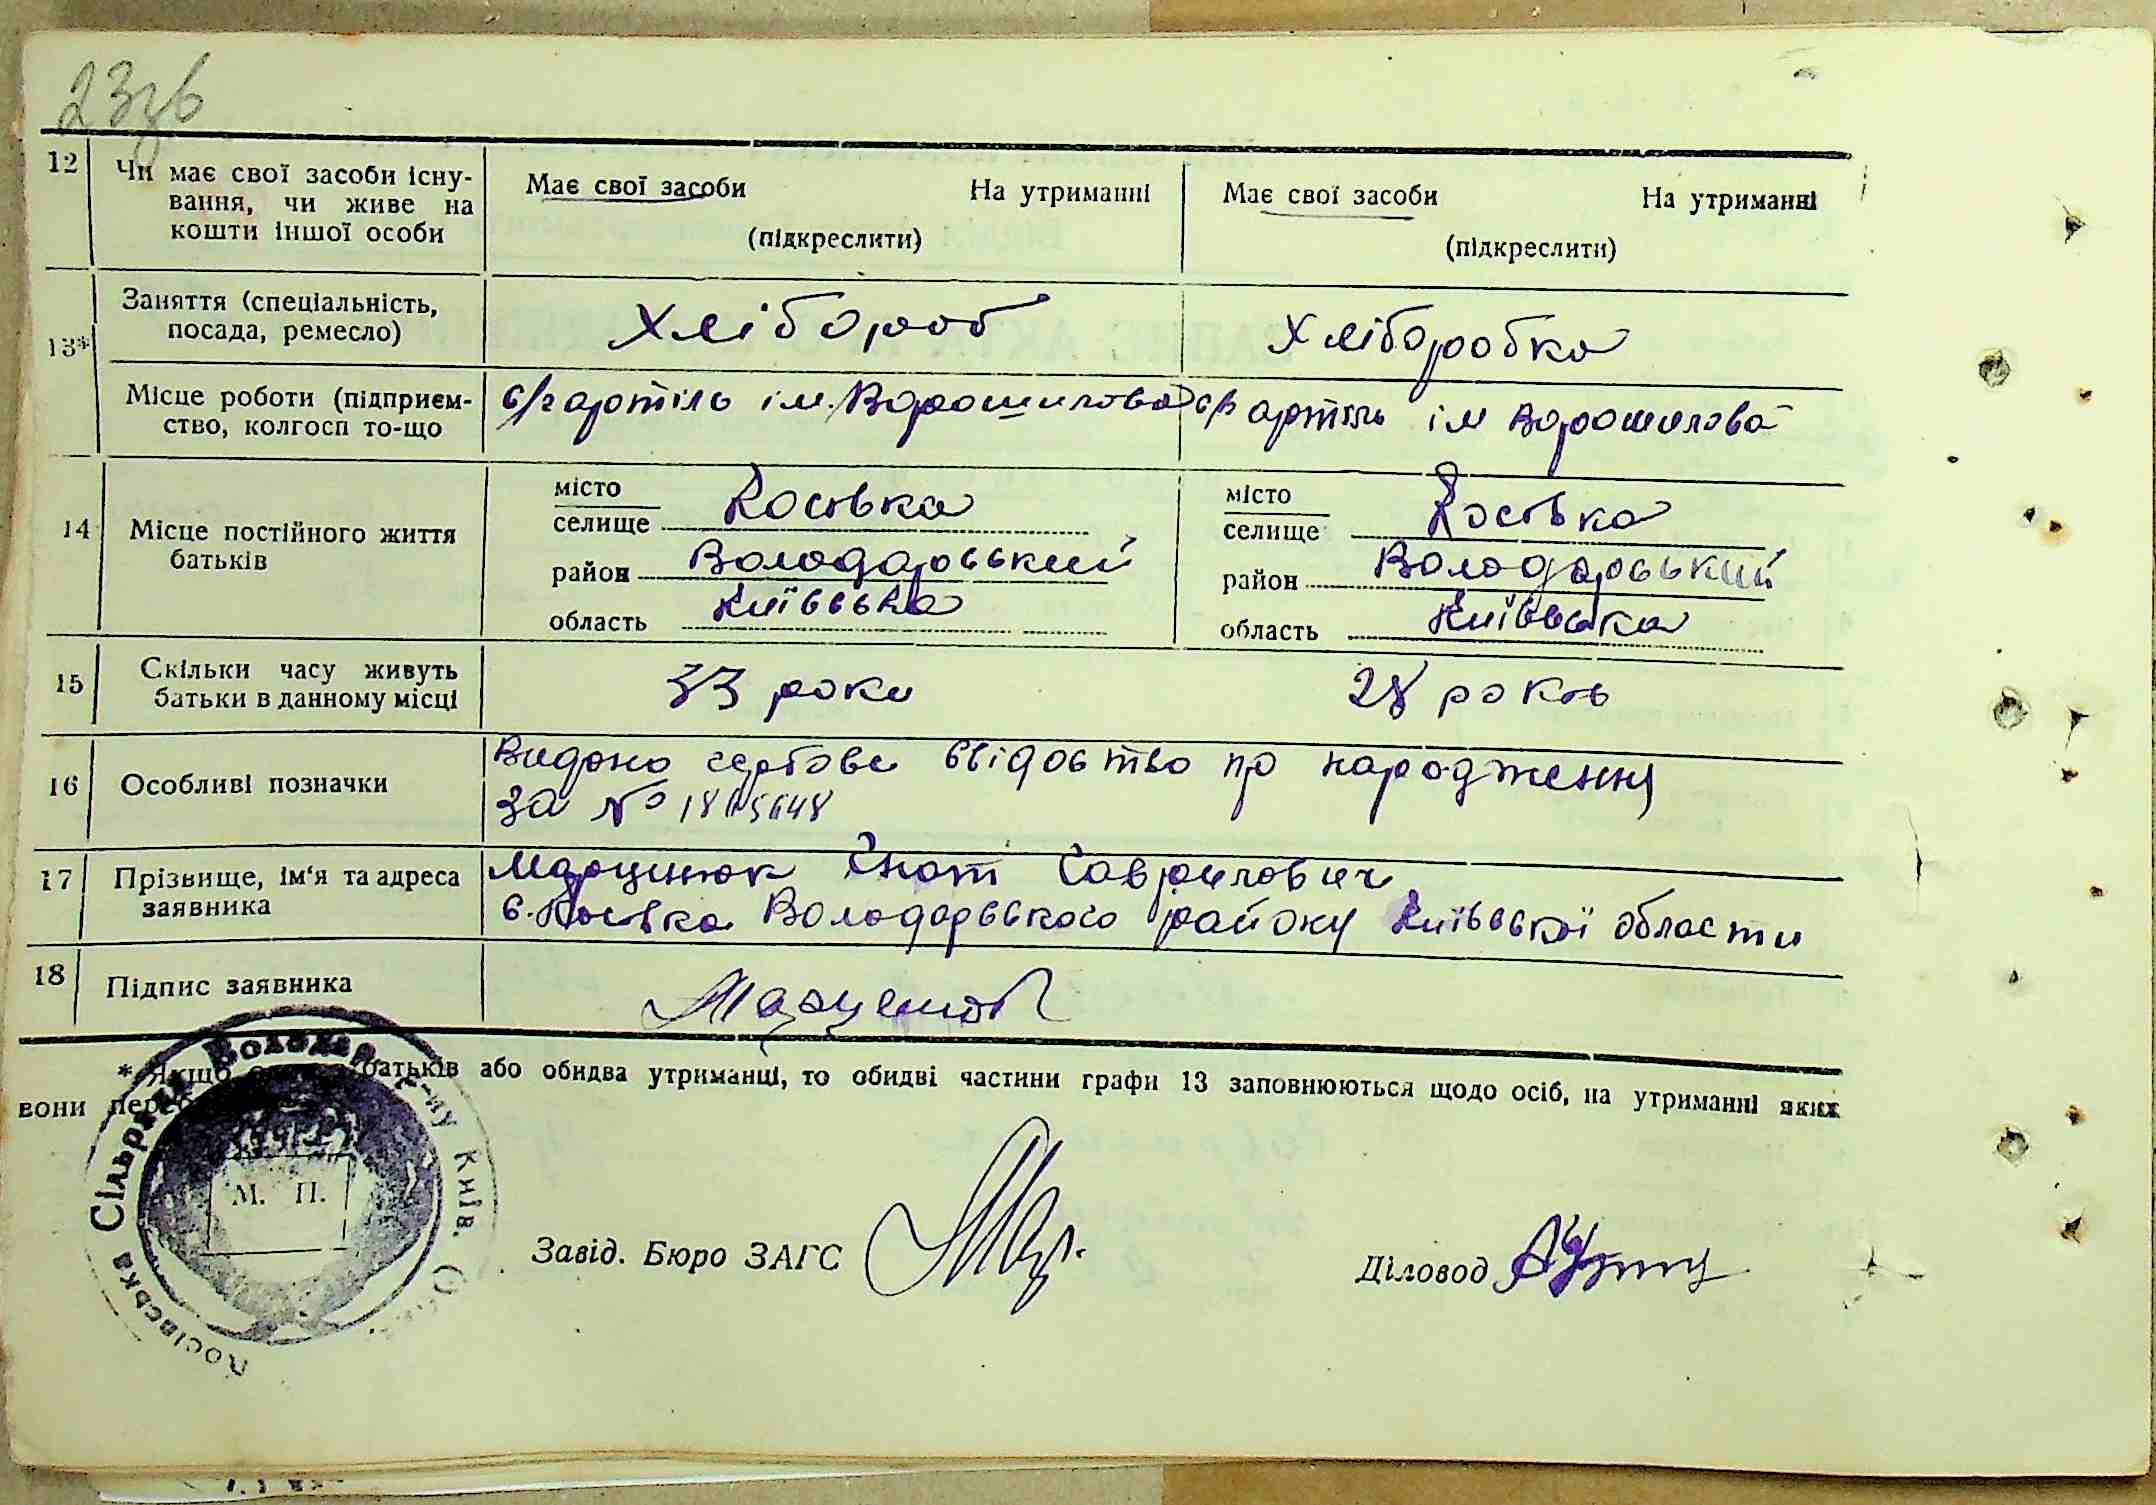 12 Чи має свої засоби існу-
вання, чи живе на
кошти іншої особи
Має свої засоби На утриманні
(підкреслити)
Має свої засоби На утриманні
(підкреслити)
13* Заняття (спеціальність,
посада, ремесло)
Хлібороб
Хліборобка
Місце роботи (підприєм-
ство, колгосп то-що
с/г артіль ім. Ворошилова
артіль ім Ворошилова
14 Місце постійного життя
батьків
місто
селище Косівка
район Володарський
область Київська
місто
селище Косівка
район Володарський
область Київська
15 Скільки часу живуть
батьки в данному місці
33 роки
28 років
16 Особливі позначки
Видано свідоцтво про народження
за №
17 Прізвище, ім'я та адреса
заявника
Марценюк Гнат Гаврилович
с. Косівка Володарського району Київської области
18 Підпис заявника
* Якщо батьків або обидва утриманці, то обидві частини графи 13 заповнюються щодо осіб, на утриманні яких
вони
Косівська Сільрада Володар. р-ну Київ.
М. П.
Завід. Бюро ЗАГС
Діловод